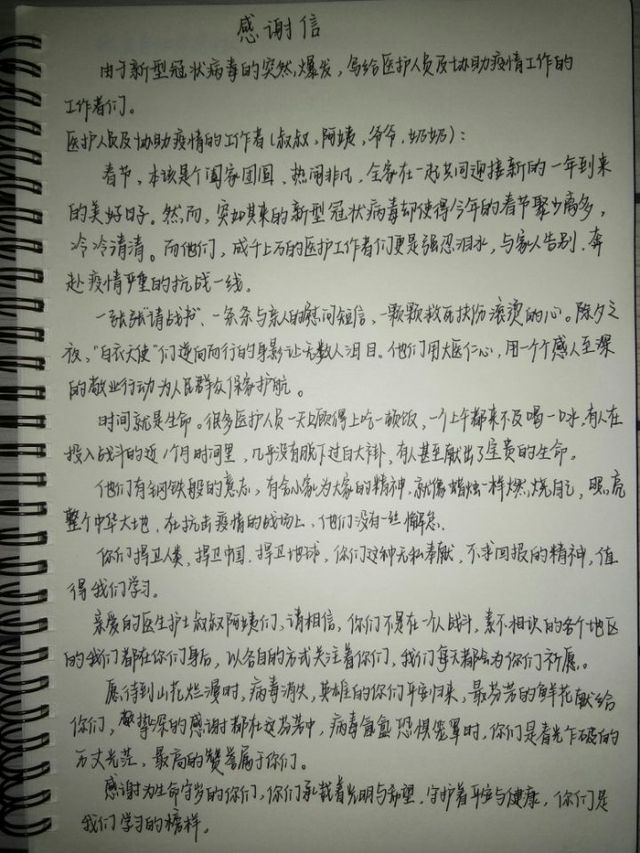 感谢信
由于新型冠状病毒的突然爆发，写给医护人员及协助疫情工作的
工作者们。
医护人员及协助疫情的工作者（叔叔，阿姨，爷爷，奶奶）：
春节，本该是个阖家团圆、热闹非凡，全家在一起共同迎接新的一年到来
的美好日子。然而，突如其来的新型冠状病毒却使得今年的春节聚少离多，
冷冷清清。而他们，成千上万的医护工作者们更是强忍泪水，与家人告别、奔
赴疫情严重的抗战一线。
一张张“请战书”、一条条与亲人的慰问短信、一颗颗救死扶伤滚烫的心。除夕之
夜，“白衣天使”们逆向而行的身影让无数人泪目。他们用大医仁心，用一个个感人至深
的敬业行动为人民群众保家护航。
时间就是生命。很多医护人员一天只顾得上吃一顿饭，一个上午都来不及喝一口水，有人在
投入战斗的近1个月时间里，几乎没有脱下过白大褂，有人甚至献出了宝贵的生命。
他们有钢铁般的意志，有舍小家为大家的精神，就像蜡烛一样燃烧自己，照亮
整个中华大地，在抗击疫情的战场上，他们没有一丝懈怠。
你们捍卫人类，捍卫中国，捍卫地球，你们这种无私奉献、不求回报的精神，值
得我们学习。
亲爱的医生护士叔叔阿姨们，请相信，你们不是在一个人战斗，素不相识的各个地区
的我们都在你们身后，以各自的方式关注着你们，我们每天都会为你们祈愿。
愿待到山花烂漫时，病毒消失，英雄的你们平安归来，最芬芳的鲜花献给
你们，挚深的感谢都在这芬芳中，病毒恐惧笼罩时，你们是春光乍破的
万丈光茫，最高的赞誉属于你们。
感谢为生命守岁的你们，你们承载着光明与希望，守护着平安与健康，你们是
我们学习的榜样。